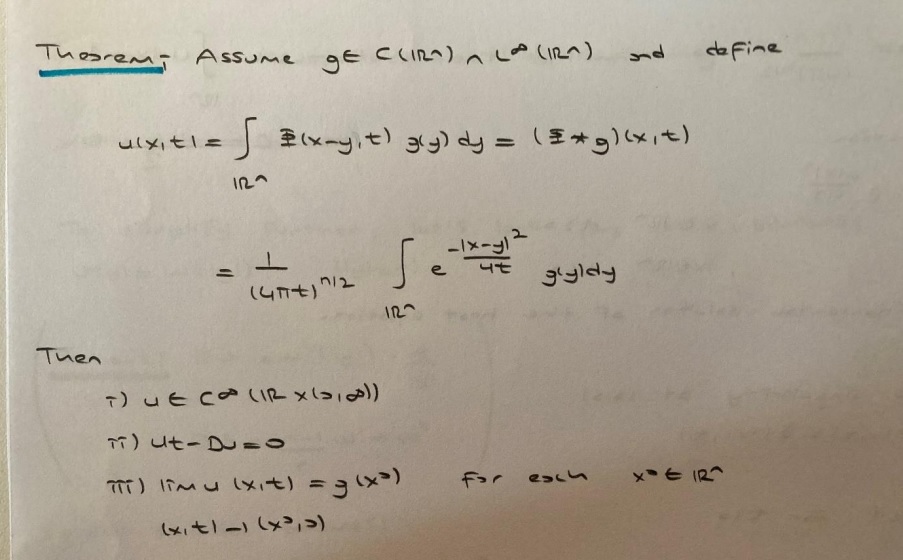 Theorem: Assume g ∈ C(ℝⁿ) ∩ L∞(ℝⁿ) and define
u(x,t) = ∫_ℝⁿ Φ(x-y,t) g(y) dy = (Φ * g)(x,t)
= 1/(4πt)^{n/2} ∫_ℝⁿ e^{-|x-y|²/4t} g(y)dy
Then
i) u ∈ C∞(ℝ × (0,∞))
ii) ut - Δu = 0
iii) lim u(x,t) = g(x⁰) for each x⁰ ∈ ℝⁿ
(x,t) → (x⁰,0)